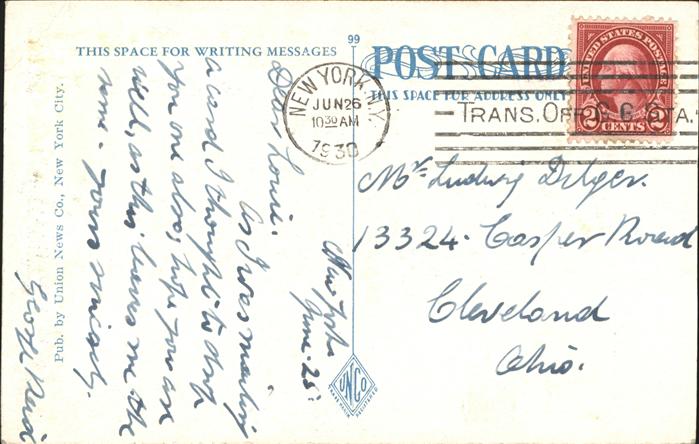 THIS SPACE FOR WRITING MESSAGES
99
POST CARD
THIS SPACE FOR ADDRESS ONLY
UNITED STATES POSTAGE
2 CENTS 2
NEW YORK, N.Y.
JUN 26
10 30 AM
1930
TRANS. OFF. G.C. STA.
Mr. Ludwig Dilger.
13324. Casper Road
Cleveland
Ohio.
New York
June. 25.
Dear Louis.
As I was mailing
a card I thought to drop
you one also, hope you are
well, as this leaves me the
same. Yours sincerely.
George
Pub. by Union News Co., New York City.
UNCO